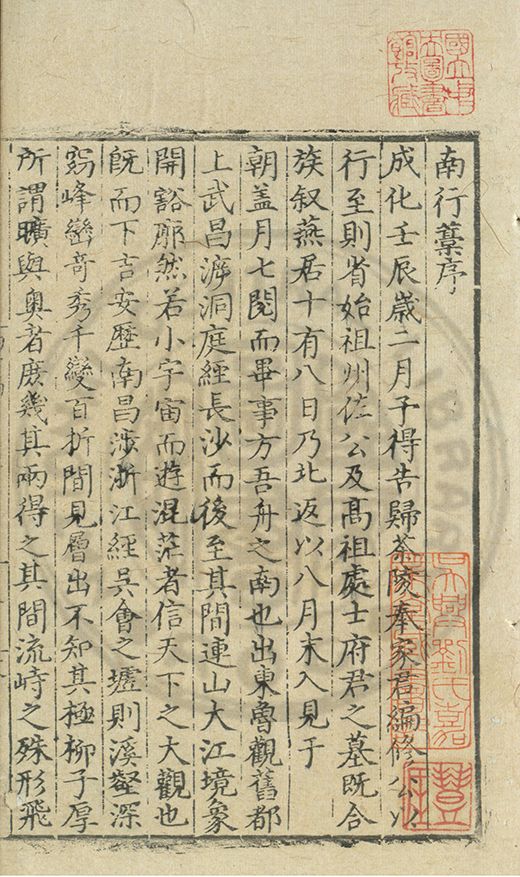 國立中
央圖書
館收藏
南行藁序
成化壬辰歲二月予得告歸茶陵奉家君編修公以
行至則省始祖州佐公及髙祖處士府君之墓既合
族叙燕居十有八日乃北返以八月末入見于
朝盖月七閱而畢事方吾舟之南也出東魯觀舊都
上武昌泝洞庭經長沙而後至其間連山大江境象
開豁廓然若小宇宙而遊混茫者信天下之大觀也
既而下吉安歷南昌涉浙江經吳會之墟則溪壑深
窈峰巒奇秀千變百折間見層出不知其極柳子厚
所謂曠與奧者庶幾其兩得之其間流峙之殊形飛
吳興劉氏嘉